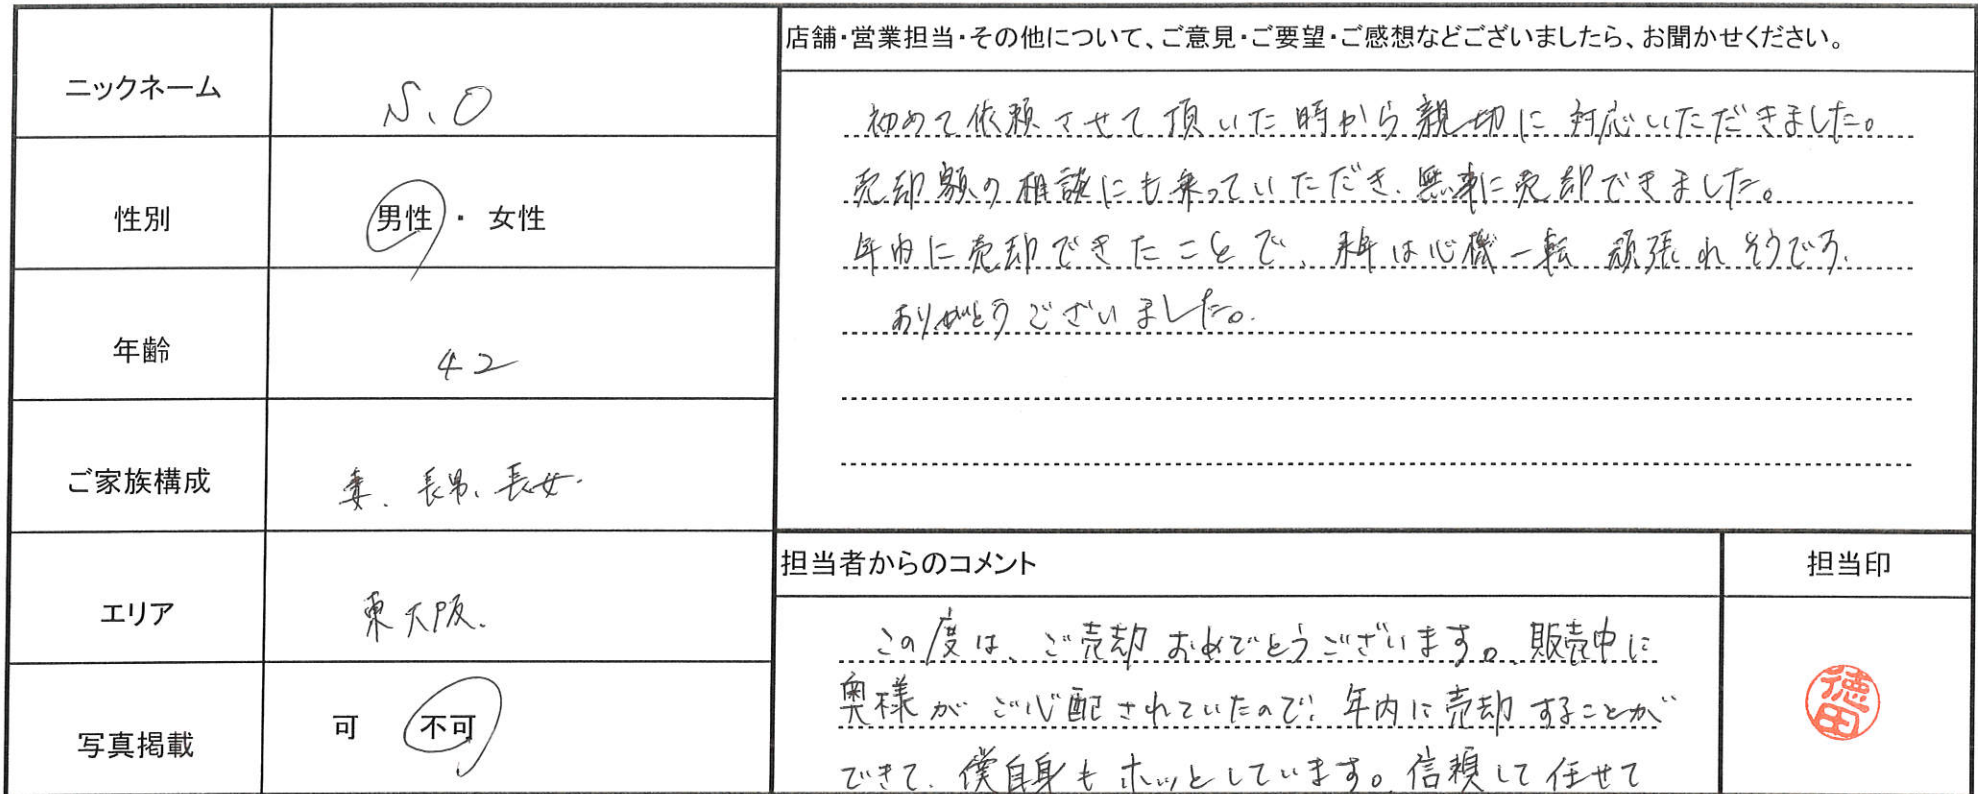 ニックネーム
S.O
性別
男性・女性
年齢
42
ご家族構成
妻、長男、長女.
エリア
東大阪.
写真掲載
可 不可
店舗・営業担当・その他について、ご意見・ご要望・ご感想などございましたら、お聞かせください。
初めて依頼させて頂いた時から親切に対応いただきました。
売却額の相談にも乗っていただき、無事に売却できました。
年内に売却できたことで、来年は心機一転頑張れそうです.
ありがとうございました。
担当者からのコメント
この度は、ご売却おめでとうございます。販売中に
奥様がご心配されていたので、年内に売却することが
できて、僕自身もホッとしています。信頼して任せて
担当印
徳田